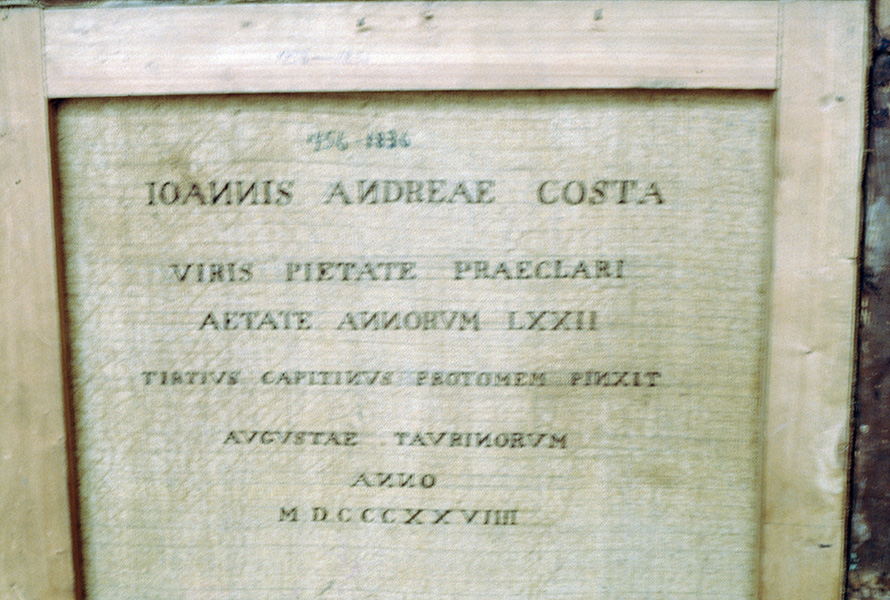 1756-1836
IOANNIS ANDREAE COSTA
VIRIS PIETATE PRAECLARI
AETATE ANNORVM LXXII
TIRTIVS CAPITINVS PROTOMEM PINXIT
AVGVSTAE TAVRINORVM
ANNO
MDCCCXXVIIII